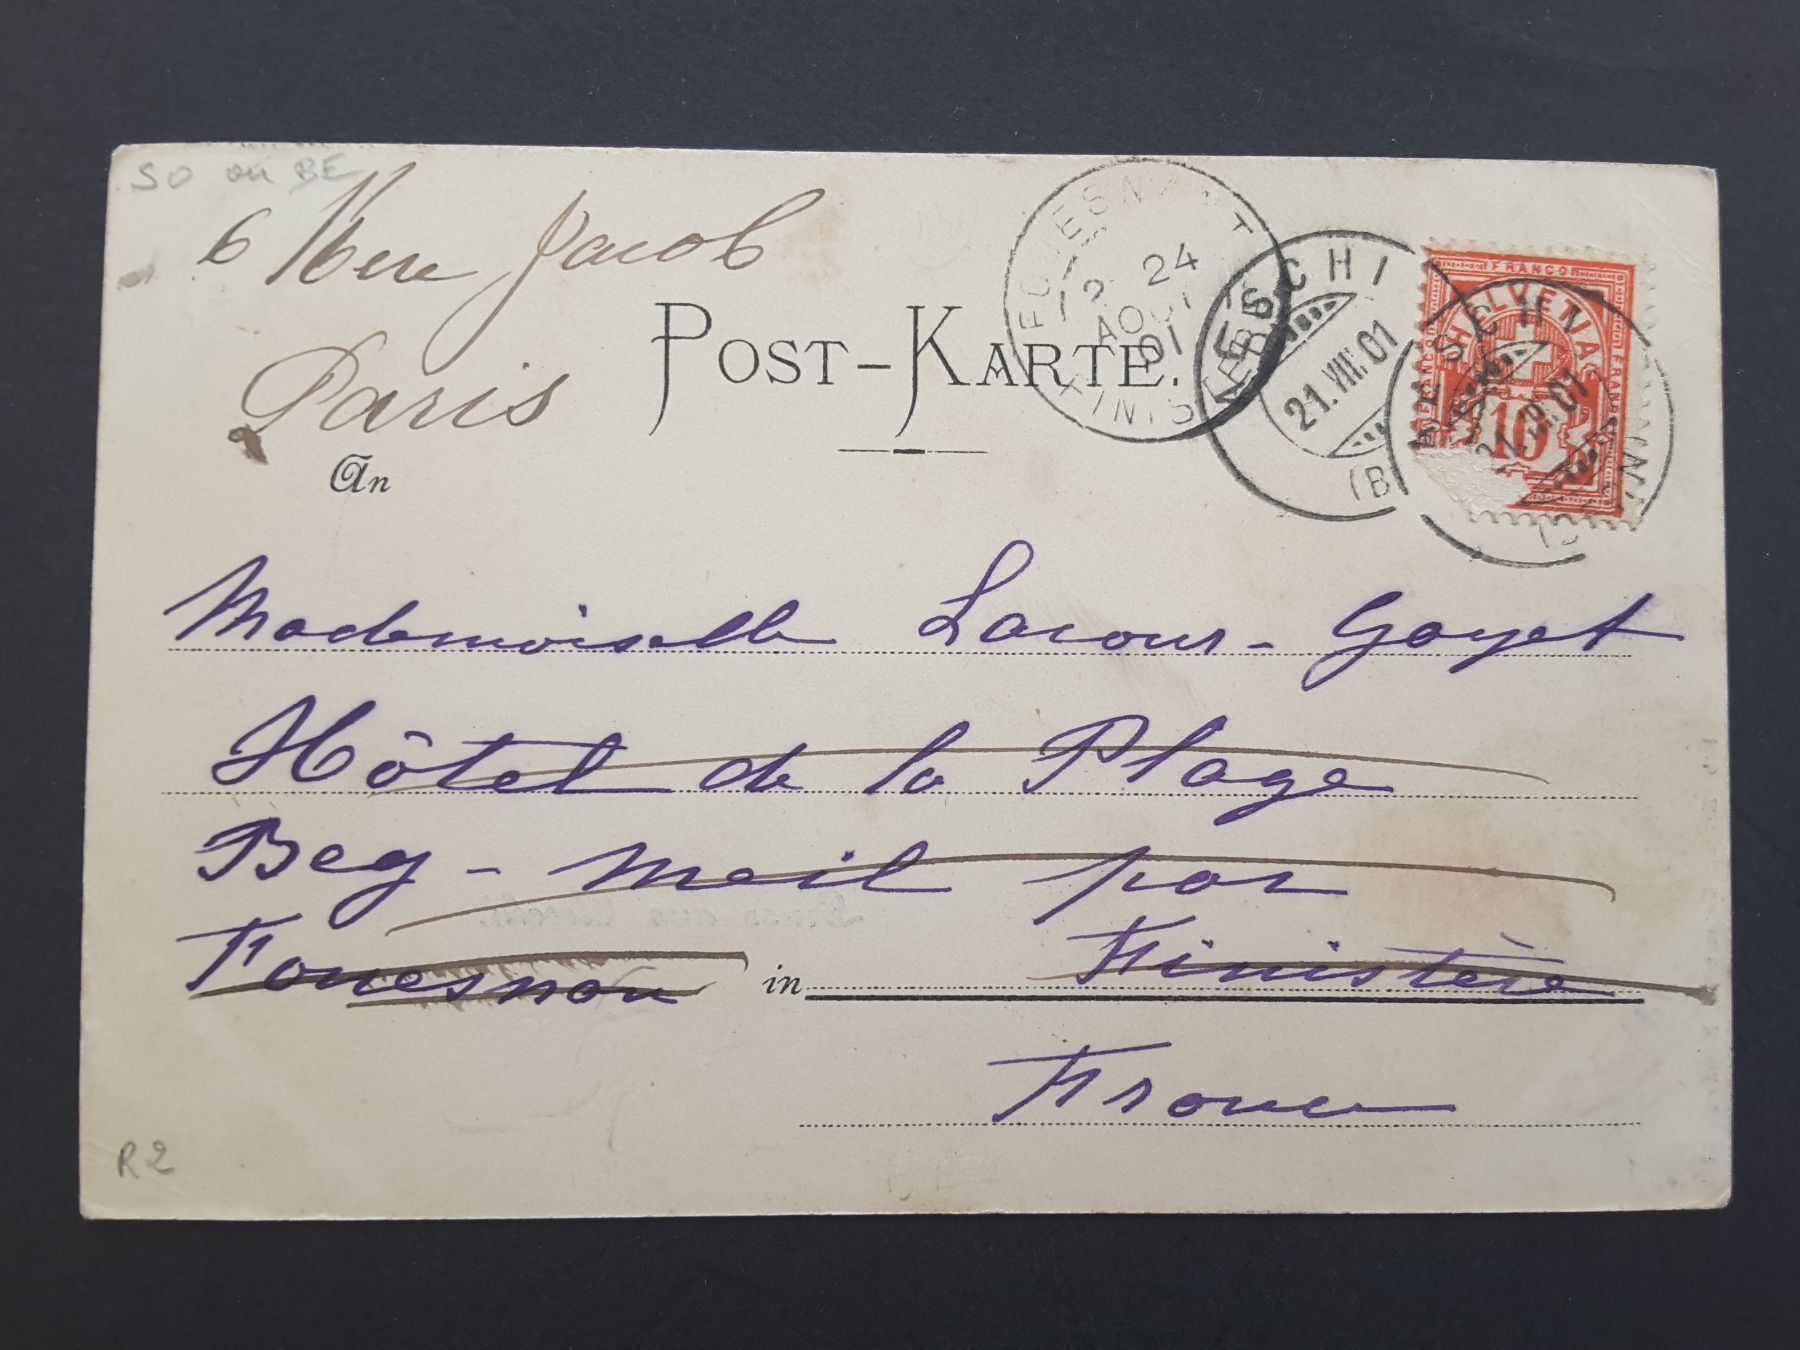 SO ou BE
6 Rue Jacob
Paris
POST-KARTE.
FOUESNANT
2 24
AOUT
01
FINISTERE
AESCHI
21.VIII.01
(B
FRANCO
HELVETIA
10
FRANCO
AESCHI
21.VIII.01
An
Mademoiselle Lacour-Gayet
Hôtel de la Plage
Beg-Meil par
Fouesnan in Finistère
France
R2